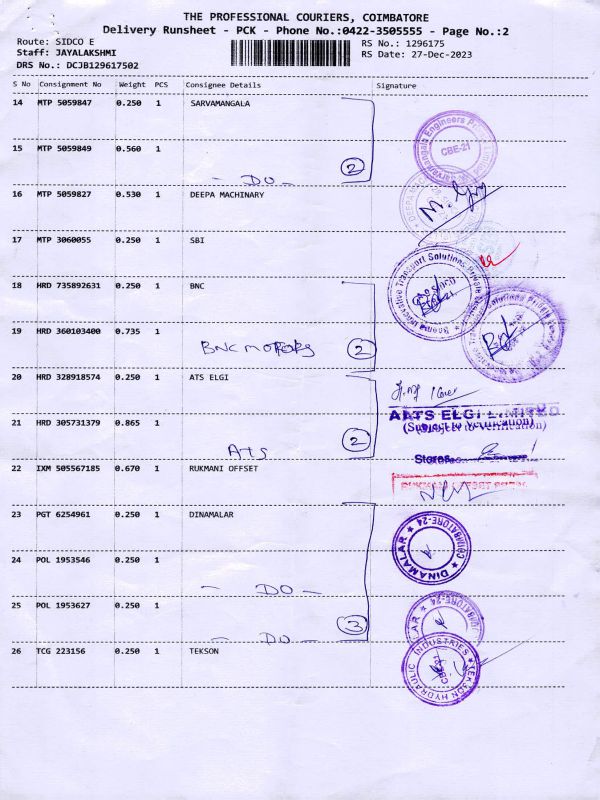 THE PROFESSIONAL COURIERS, COIMBATORE
Delivery Runsheet - PCK - Phone No.:0422-3505555 - Page No.:2
Route: SIDCO E
RS No.: 1296175
Staff: JAYALAKSHMI
RS Date: 27-Dec-2023
DRS No.: DCJB129617502
S No Consignment No Weight PCS Consignee Details Signature
14 MTP 5059847 0.250 1 SARVAMANGALA
15 MTP 5059849 0.560 1
- DO - 2
CBE-21
16 MTP 5059827 0.530 1 DEEPA MACHINARY
17 MTP 3060055 0.250 1 SBI
18 HRD 735892631 0.250 1 BNC
19 HRD 360103400 0.735 1
BNC MOTORS 2
20 HRD 328918574 0.250 1 ATS ELGI
ATS ELGI LIMITED
(Subject to verification)
21 HRD 305731379 0.865 1
ATS 2
Stores
22 IXM 505567185 0.670 1 RUKMANI OFFSET
23 PGT 6254961 0.250 1 DINAMALAR
DINAMALAR ★ COIMBATORE-24 ★
24 POL 1953546 0.250 1
- DO -
25 POL 1953627 0.250 1
- DO - 3
26 TCG 223156 0.250 1 TEKSON
★ TEKSON HYDRAULIC INDUSTRIES